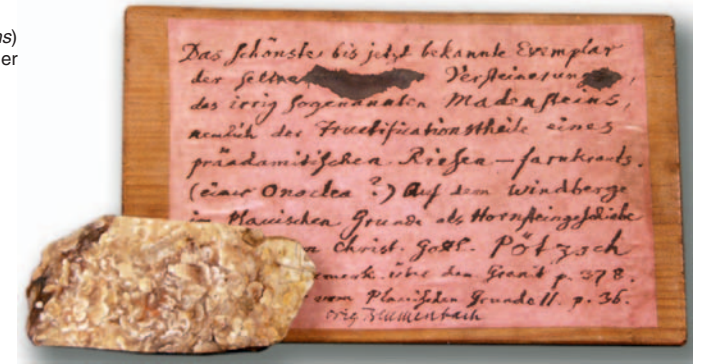 ns)
er
Das schönste bis jetzt bekannte Exemplar
der seltnen Versteinerung,
des irrig sogenannten Madensteins,
nemlich der Fructificationstheile eines
präadamitischen Riesen-farnkrauts.
(einer Onoclea?) Auf dem Windberge
im Plauischen Grunde als Hornsteingeschiebe
n Christ. Gottl. Pötzsch
emerk. über den Granit p. 378.
vom Plauischen Grunde II. p. 36.
orig Blumenbach